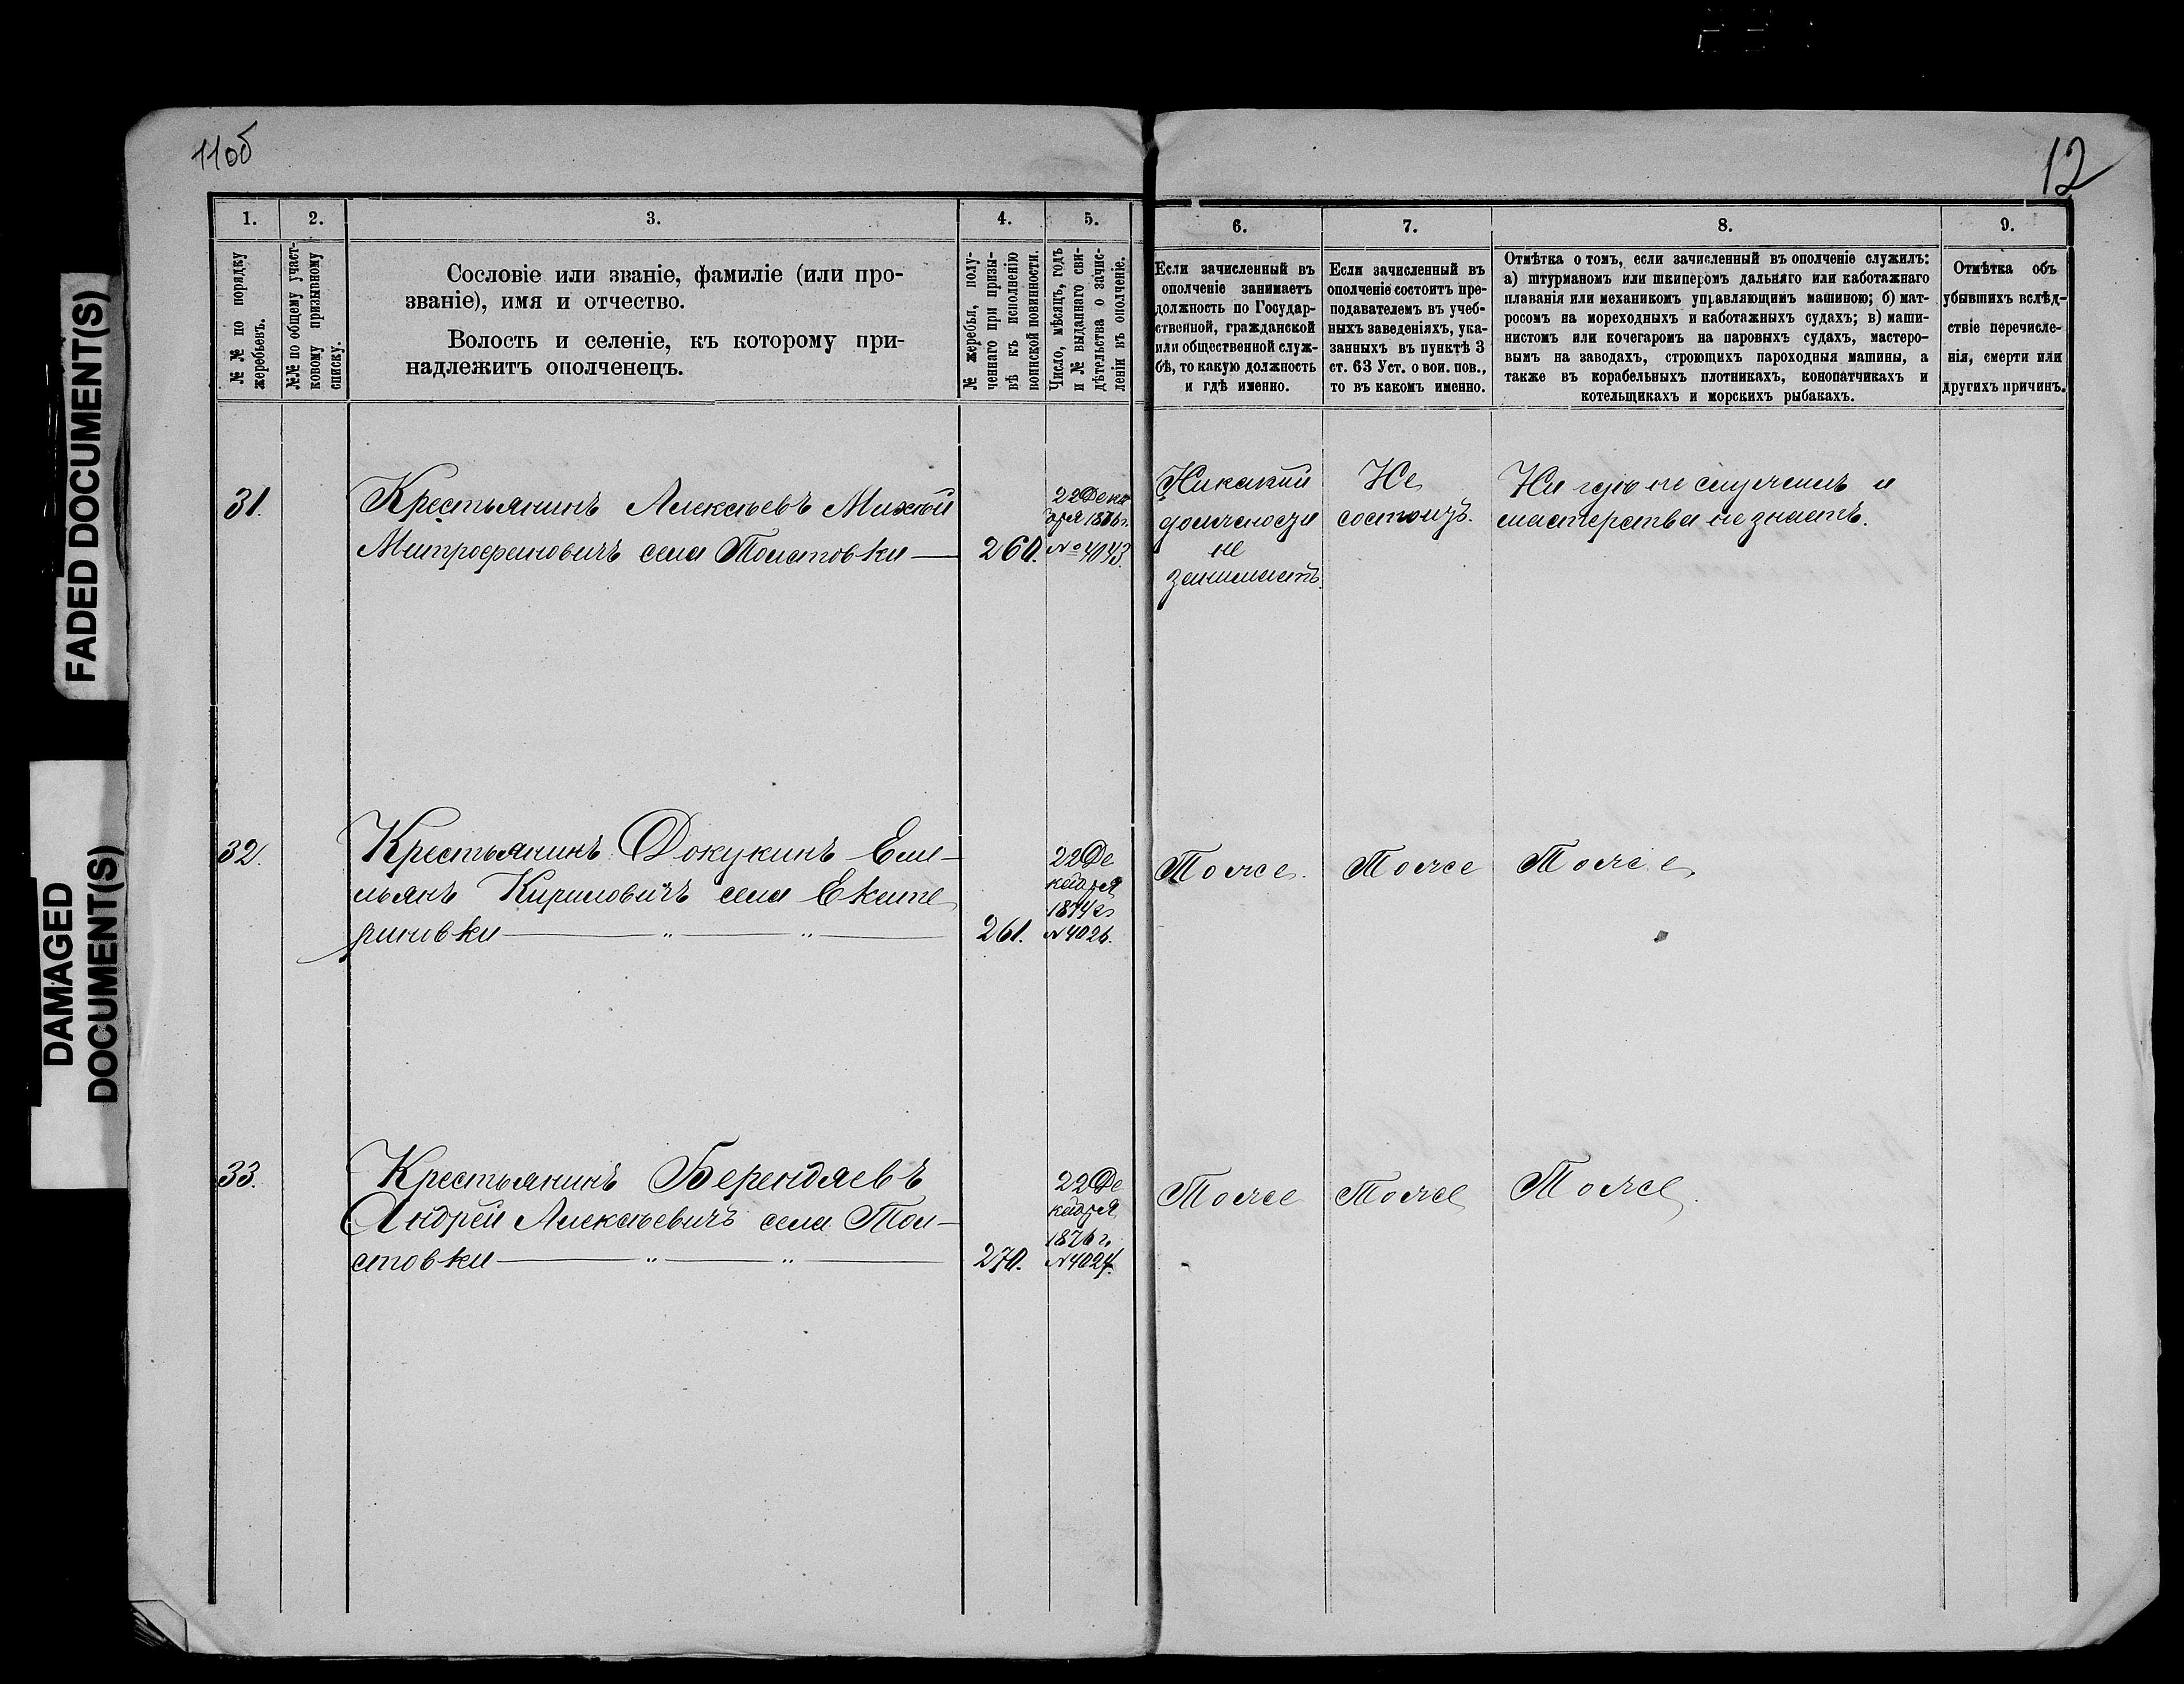 11об
12
1.
2.
3.
4.
5.
6.
7.
8.
9.
№ № по порядку
жеребьевъ.
№№ по общему участ-
ковому призывному
списку.
Сословіе или званіе, фамиліе (или про-
званіе), имя и отчество.
Волость и селеніе, къ которому при-
надлежитъ ополченецъ.
№ жеребья, полу-
ченнаго при призы-
вѣ къ исполненію
воинской повинности.
Число, мѣсяцъ, годъ
и № выданнаго сви-
дѣтельства о зачис-
леніи въ ополченіе.
Если зачисленный въ
ополченіе занимаетъ
должность по Государ-
ственной, гражданской
или общественной служ-
бѣ, то какую должность
и гдѣ именно.
Если зачисленный въ
ополченіе состоитъ пре-
подавателемъ въ учеб-
ныхъ заведеніяхъ, ука-
занныхъ въ пунктѣ 3
ст. 63 Уст. о вои. пов.,
то въ какомъ именно.
Отмѣтка о томъ, если зачисленный въ ополченіе служилъ:
а) штурманомъ или шкиперомъ дальняго или каботажнаго
плаванія или механикомъ управляющимъ машиною; б) мат-
росомъ на мореходныхъ и каботажныхъ судахъ; в) маши-
нистомъ или кочегаромъ на паровыхъ судахъ, мастеро-
вымъ на заводахъ, строющихъ пароходныя машины, а
также въ корабельныхъ плотникахъ, конопатчикахъ и
котельщикахъ и морскихъ рыбакахъ.
Отмѣтка объ
убывшихъ вслѣд-
ствіе перечисле-
нія, смерти или
другихъ причинъ.
31.
Крестьянинъ Алексѣевъ
Митрофановичъ села Толстовки
260.
22 Дека
бря 1876 г.
№ 4043.
Никакой
должности
не
занимаетъ.
Не
состоитъ.
Ни гдѣ не служилъ и
мастерства не знаетъ.
32.
Крестьянинъ Докукинъ Еме-
льянъ Кириловичъ села Екате
риновки
261.
22 Де
кабря
1874 г.
№ 4026.
Тоже.
Тоже
Тоже
33.
Крестьянинъ Берендяевъ
Андрей Алексѣевичъ села Тол-
стовки
270.
22 Де
кабря
1876 г.
№ 4024.
Тоже
Тоже
Тоже.
FADED DOCUMENT(S)
DAMAGED
DOCUMENT(S)